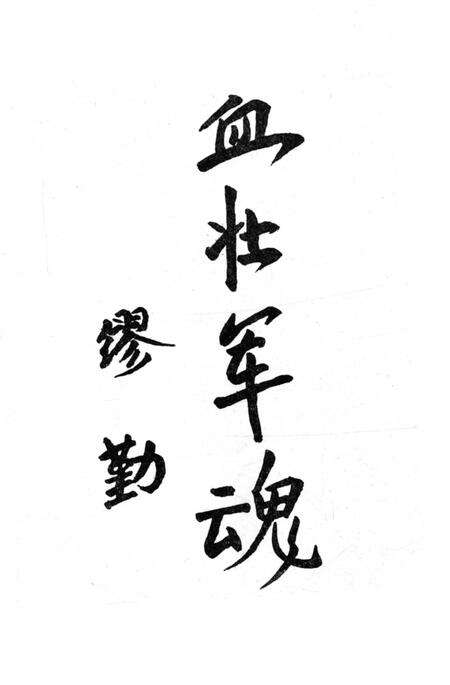 血壮军魂
缪勤